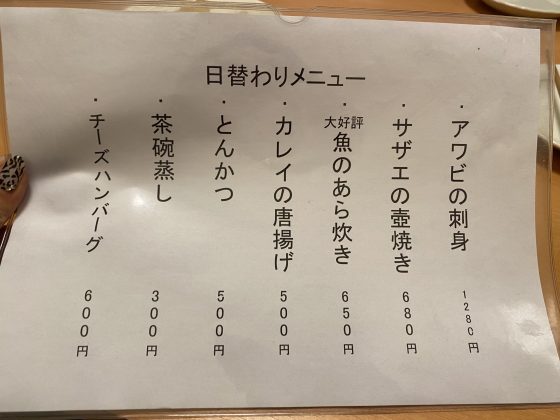 日替わりメニュー
・アワビの刺身 1280円
・サザエの壺焼き 680円
・大好評 魚のあら炊き 650円
・カレイの唐揚げ 500円
・とんかつ 500円
・茶碗蒸し 300円
・チーズハンバーグ 600円